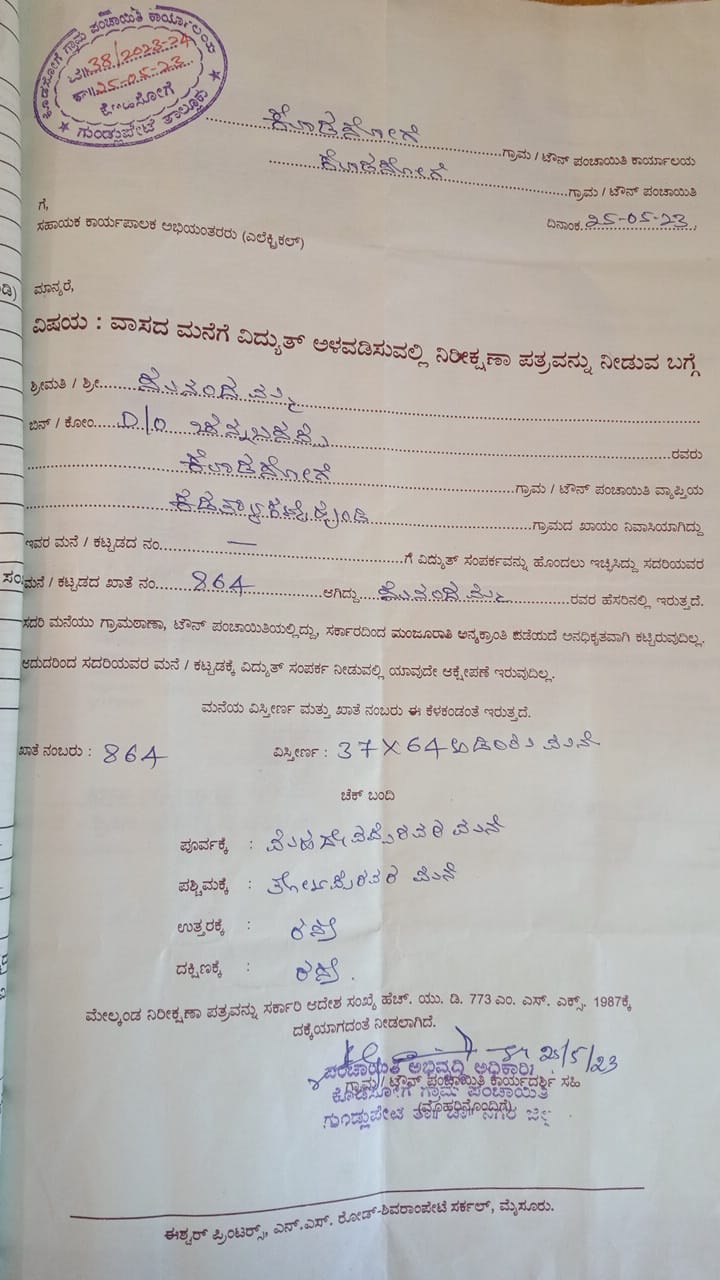 ಕೊಡಸೋಗೆ ಗ್ರಾಮ ಪಂಚಾಯಿತಿ ಕಾರ್ಯಾಲಯ
ಸಂ||38/2023-24
ದಿ||25-05-23
ಕೊಡಸೋಗೆ
★ ಗುಂಡ್ಲುಪೇಟೆ ತಾಲ್ಲೂಕು ★
ಕೊಡಸೋಗೆ ಗ್ರಾಮ / ಟೌನ್ ಪಂಚಾಯಿತಿ ಕಾರ್ಯಾಲಯ
ಕೊಡಸೋಗೆ ಗ್ರಾಮ / ಟೌನ್ ಪಂಚಾಯಿತಿ
ದಿನಾಂಕ. 25-05-23
ಗೆ,
ಸಹಾಯಕ ಕಾರ್ಯಪಾಲಕ ಅಭಿಯಂತರರು (ಎಲೆಕ್ಟ್ರಿಕಲ್)
ಮಾನ್ಯರೆ,
ವಿಷಯ : ವಾಸದ ಮನೆಗೆ ವಿದ್ಯುತ್ ಅಳವಡಿಸುವಲ್ಲಿ ನಿರೀಕ್ಷಣಾ ಪತ್ರವನ್ನು ನೀಡುವ ಬಗ್ಗೆ
ಶ್ರೀಮತಿ / ಶ್ರೀ
ಬಿನ್ / ಕೋಂ. D/o ರವರು
ಕೊಡಸೋಗೆ ಗ್ರಾಮ / ಟೌನ್ ಪಂಚಾಯಿತಿ ವ್ಯಾಪ್ತಿಯ
ಗ್ರಾಮದ ಖಾಯಂ ನಿವಾಸಿಯಾಗಿದ್ದು
ಇವರ ಮನೆ / ಕಟ್ಟಡದ ನಂ. — ಗೆ ವಿದ್ಯುತ್ ಸಂಪರ್ಕವನ್ನು ಹೊಂದಲು ಇಚ್ಛಿಸಿದ್ದು ಸದರಿಯವರ
ಮನೆ / ಕಟ್ಟಡದ ಖಾತೆ ನಂ. 864 ಆಗಿದ್ದು ರವರ ಹೆಸರಿನಲ್ಲಿ ಇರುತ್ತದೆ.
ಸದರಿ ಮನೆಯು ಗ್ರಾಮಠಾಣಾ, ಟೌನ್ ಪಂಚಾಯಿತಿಯಲ್ಲಿದ್ದು, ಸರ್ಕಾರದಿಂದ ಮಂಜೂರಾತಿ ಅನ್ಯಕ್ರಾಂತಿ ಪಡೆಯದೆ ಅನಧಿಕೃತವಾಗಿ ಕಟ್ಟಿರುವುದಿಲ್ಲ.
ಆದುದರಿಂದ ಸದರಿಯವರ ಮನೆ / ಕಟ್ಟಡಕ್ಕೆ ವಿದ್ಯುತ್ ಸಂಪರ್ಕ ನೀಡುವಲ್ಲಿ ಯಾವುದೇ ಆಕ್ಷೇಪಣೆ ಇರುವುದಿಲ್ಲ.
ಮನೆಯ ವಿಸ್ತೀರ್ಣ ಮತ್ತು ಖಾತೆ ನಂಬರು ಈ ಕೆಳಕಂಡಂತೆ ಇರುತ್ತದೆ.
ಖಾತೆ ನಂಬರು : 864 ವಿಸ್ತೀರ್ಣ : 37X64
ಚೆಕ್ ಬಂದಿ
ಪೂರ್ವಕ್ಕೆ : ಮಹದೇವಪ್ಪರವರ ಮನೆ
ಪಶ್ಚಿಮಕ್ಕೆ : ರವರ ಮನೆ
ಉತ್ತರಕ್ಕೆ : ರಸ್ತೆ
ದಕ್ಷಿಣಕ್ಕೆ : ರಸ್ತೆ.
ಮೇಲ್ಕಂಡ ನಿರೀಕ್ಷಣಾ ಪತ್ರವನ್ನು ಸರ್ಕಾರಿ ಆದೇಶ ಸಂಖ್ಯೆ ಹೆಚ್. ಯು. ಡಿ. 773 ಎಂ. ಎಸ್. ಎಕ್ಸ್. 1987ಕ್ಕೆ
ದಕ್ಕೆಯಾಗದಂತೆ ನೀಡಲಾಗಿದೆ.
25/5/23
ಪಂಚಾಯಿತಿ ಅಭಿವೃದ್ಧಿ ಅಧಿಕಾರಿ
ಗ್ರಾಮ / ಟೌನ್ ಪಂಚಾಯಿತಿ ಕಾರ್ಯದರ್ಶಿ ಸಹಿ
ಕೊಡಸೋಗೆ ಗ್ರಾಮ ಪಂಚಾಯಿತಿ
(ಮೊಹರಿನೊಂದಿಗೆ)
ಗುಂಡ್ಲುಪೇಟೆ ತಾ|| ಚಾ|| ನಗರ ಜಿಲ್ಲೆ
ಈಶ್ವರ್ ಪ್ರಿಂಟರ್ಸ್, ಎನ್.ಎಸ್. ರೋಡ್-ಶಿವರಾಂಪೇಟೆ ಸರ್ಕಲ್, ಮೈಸೂರು.